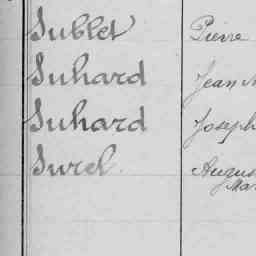 Sublet Pierre
Suhard Jean M
Suhard Joseph
Surel Augus
Mar